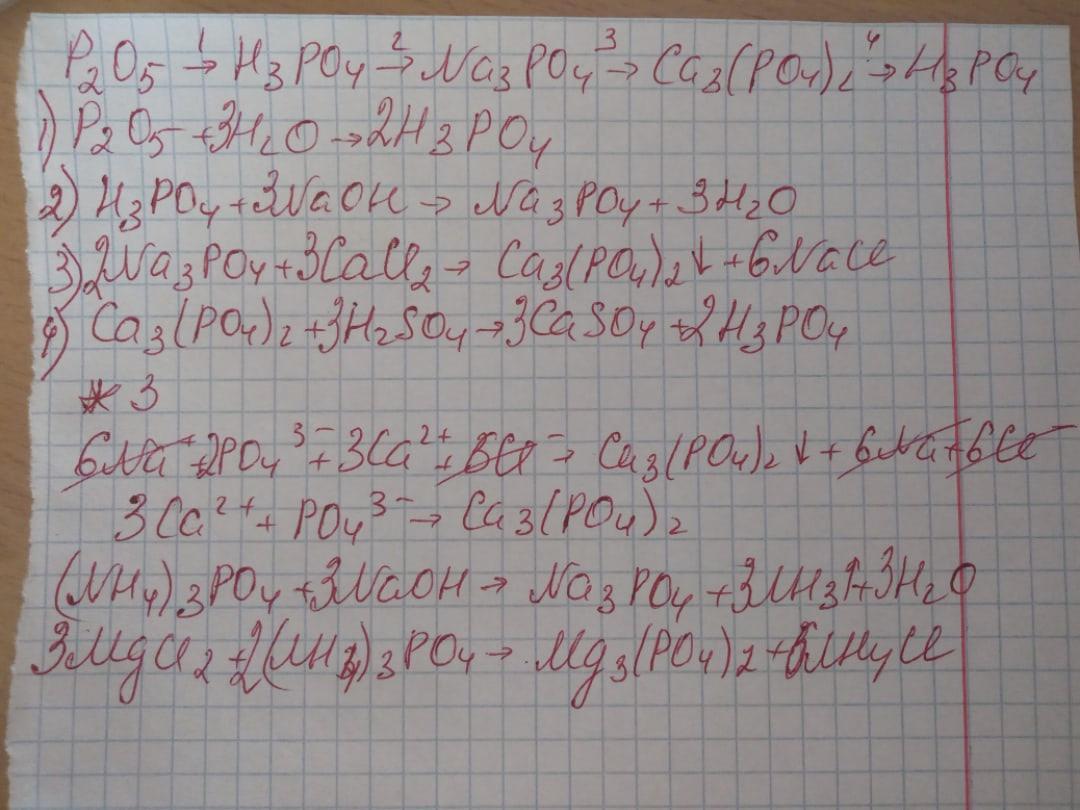 P₂O₅ →¹ H₃PO₄ →² Na₃PO₄ →³ Ca₃(PO₄)₂ →⁴ H₃PO₄
1) P₂O₅ + 3H₂O → 2H₃PO₄
2) H₃PO₄ + 3NaOH → Na₃PO₄ + 3H₂O
3) 2Na₃PO₄ + 3CaCl₂ → Ca₃(PO₄)₂↓ + 6NaCl
4) Ca₃(PO₄)₂ + 3H₂SO₄ → 3CaSO₄ + 2H₃PO₄
* 3
6Na⁺ + 2PO₄³⁻ + 3Ca²⁺ + 6Cl⁻ → Ca₃(PO₄)₂↓ + 6Na⁺ + 6Cl⁻
3Ca²⁺ + PO₄³⁻ → Ca₃(PO₄)₂
(NH₄)₃PO₄ + 3NaOH → Na₃PO₄ + 3NH₃↑ + 3H₂O
3MgCl₂ + 2(NH₄)₃PO₄ → Mg₃(PO₄)₂ + 6NH₄Cl